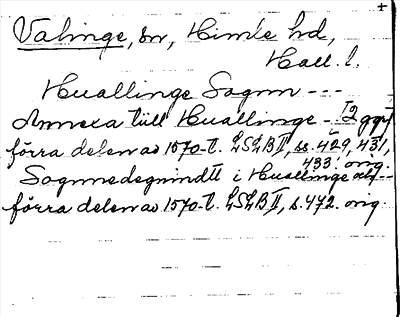 +
Valinge, sn, Himle hd,
Hall. l.
Huallinge Sognn ---
Annexa tiill Huallinge - [2 ggr]
förra delen av 1570-t. LSLB II, ss. 429, 431,
433. orig.
Sognnedegnindtt i Huallinge
förra delen av 1570-t. LSLB II, s. 472. orig.